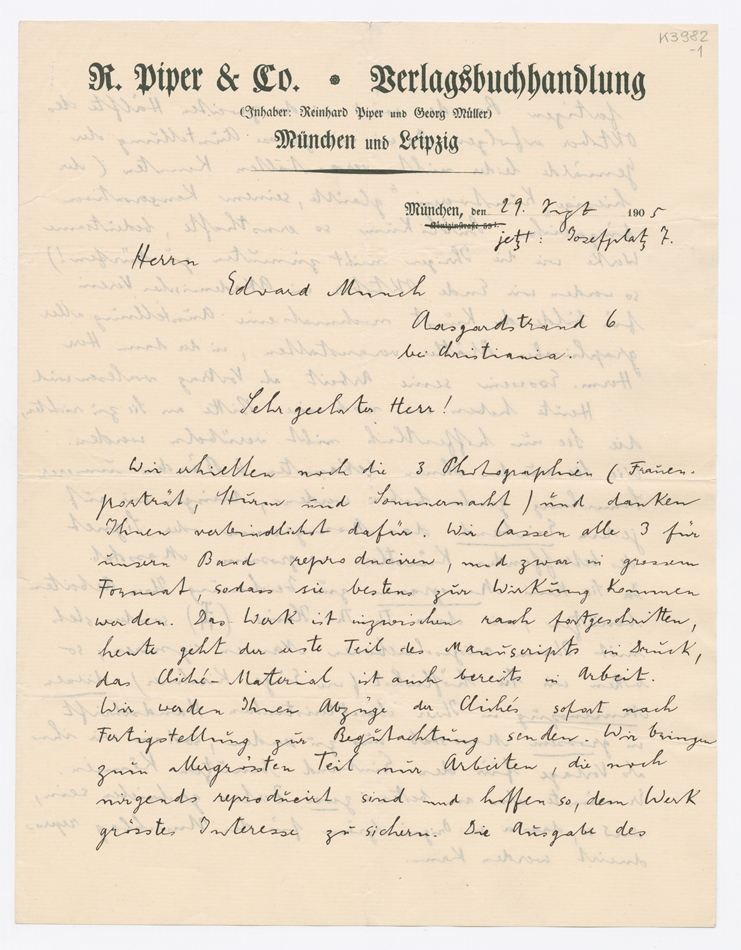 K3982
-1
R. Piper & Co. • Verlagsbuchhandlung
(Inhaber: Reinhard Piper und Georg Müller)
München und Leipzig
München, den 29. Sept 1905
jetzt: Josefplatz 7.
Herrn
Edvard Munch
Aasgardstrand 6
bei Christiania.
Sehr geehrter Herr!
Wir erhielten noch die 3 Photographien (Frauen-
porträt, Sturm und Sommernacht) und danken
Ihnen verbindlichst dafür. Wir lassen alle 3 für
unsern Band reproduciren, und zwar in grossem
Format, sodass sie bestens zur Wirkung kommen
werden. Das Werk ist inzwischen rasch fortgeschritten,
heute geht der erste Teil des Manuscripts in Druck,
das Cliché-Material ist auch bereits in Arbeit.
Wir werden Ihnen Abzüge der Clichés sofort nach
Fertigstellung zur Begutachtung senden. Wir bringen
zum allergrössten Teil nur Arbeiten, die noch
nirgends reproducirt sind und hoffen so, dem Werk
grösstes Interesse zu sichern. Die Ausgabe des